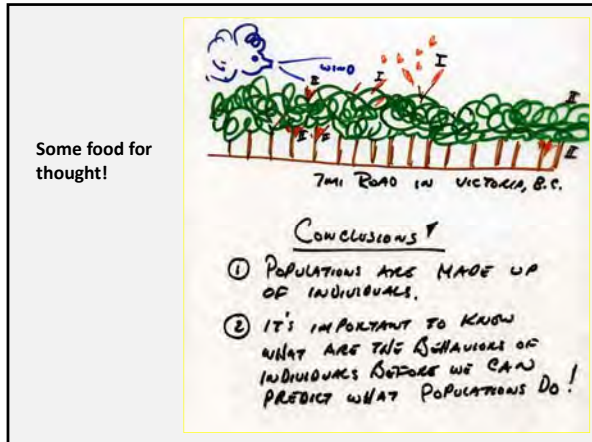 Some food for
thought!
WIND
II
I
I
II
II
II
II
7MI ROAD IN VICTORIA, B.C.
CONCLUSIONS
① POPULATIONS ARE MADE UP
OF INDIVIDUALS.
② IT'S IMPORTANT TO KNOW
WHAT ARE THE BEHAVIORS OF
INDIVIDUALS BEFORE WE CAN
PREDICT WHAT POPULATIONS DO!